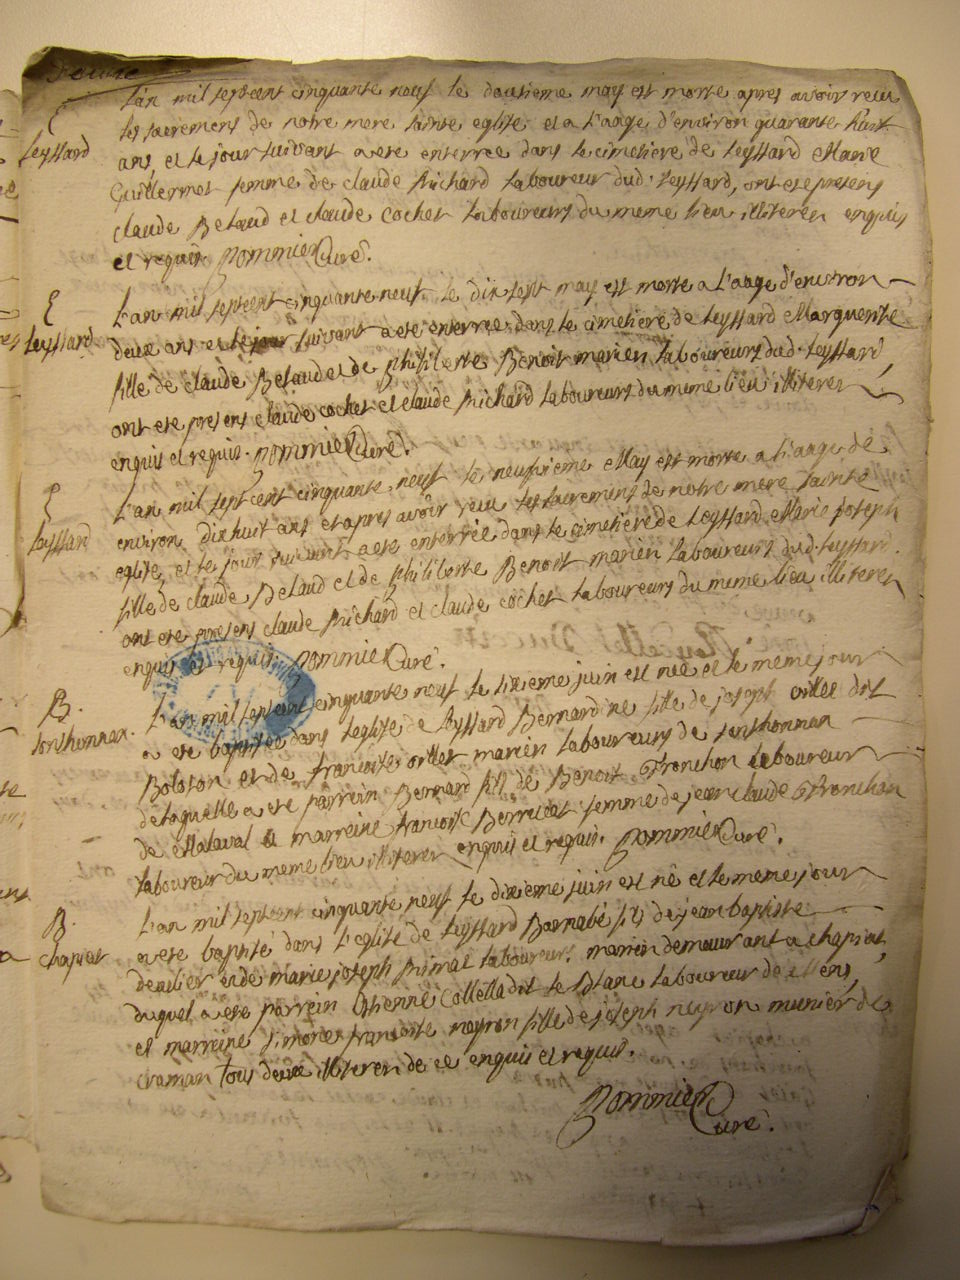 Douze
E
Leyssard
L'an mil septcent cinquante neuf le douzieme may est morte apres avoir receu
les sacremens de notre mere sainte eglise et a l'aage d'environ quarante huit
ans, et le jour suivant a ete enterree dans le cimetiere de Leyssard Marie
Guillermet femme de claude Richard laboureur dud. Leyssard, ont ete presens
claude Belaud et claude cochet laboureurs du meme lieu illiteres enquis
et requis. Pommier Curé.
E
Leyssard
L'an mil septcent cinquante neuf le dix sept may est morte a l'aage d'environ
deux ans et le jour suivant a ete enterree dans le cimetiere de Leyssard Marguerite
fille de claude Belaud et de philiberte Benoit mariés laboureurs dud. Leyssard,
ont ete presens claude cochet et claude Richard laboureurs du meme lieu illiteres
enquis et requis. Pommier Curé.
E
Leyssard
L'an mil sept cent cinquante neuf le May est morte a l'aage de
environ dixhuit ans et apres avoir receu les sacremens de notre mere sainte
eglise, et le jour suivant a ete enterrée dans le cimetiere de Leyssard Marie joseph
fille de claude Belaud et de philiberte Benoit mariés laboureurs dud. Leyssard.
ont ete presens claude Richard et claude cochet laboureurs du meme lieu illiteres
enquis et requis. Pommier Curé.
B.
sonthonnax.
L'an mil septcent cinquante neuf le sixieme juin est née et le meme jour
a ete baptisée dans l'eglise de Leyssard Bernardine fille de joseph orillet dit
Boloson et de francoise orillet mariés laboureurs de sonthonnax
de laquelle a ete parrein Bernard fils de Benoit Tronchon laboureur
de Malaval et marreine francoise femme de jean claude Tronchon
laboureur du meme lieu illiteres enquis et requis. Pommier Curé.
B.
chapiat
L'an mil septcent cinquante neuf le dixieme juin est né et le meme jour
a ete baptisé dans l'eglise de Leyssard Barnabé fils de jean baptiste
et de marie joseph laboureur, mariés demeurant a chapiat,
duquel a ete parrein Etienne Colletta dit le Blanc laboureur de
et marreine francoise neyron fille de joseph neyron munier de
craman tous deux illiteres de ce enquis et requis.
Pommier
Curé.